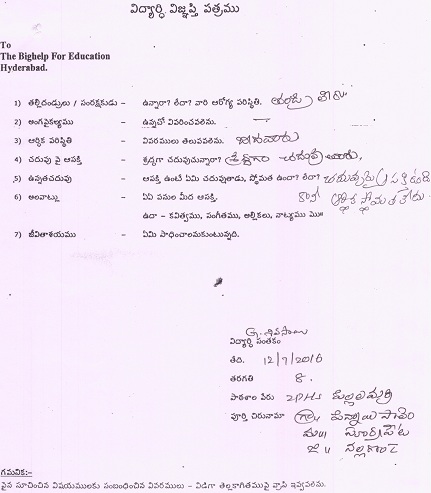 విద్యార్ధి విజ్ఞప్తి పత్రము
To
The Bighelp For Education
Hyderabad.
1) తల్లిదండ్రులు / సంరక్షకుడు – ఉన్నారా? లేదా? వారి ఆరోగ్య పరిస్థితి. తండ్రి లేడు.
2) అంగవైకల్యము – ఉన్నచో వివరించవలెను. —
3) ఆర్థిక పరిస్థితి – వివరములు తెలుపవలెను.
4) చదువు పై ఆసక్తి – శ్రద్ధగా చదువుచున్నారా?
5) ఉన్నతచదువు – ఆసక్తి ఉంటే ఏమి చదువుతాడు, స్థోమత ఉందా? లేదా?
6) అలవాట్లు – ఏఏ పనుల మీద ఆసక్తి. కాని ఆర్థిక స్థోమత లేదు.
ఉదా – కవిత్వము, సంగీతము, అల్లికలు, నాట్యము మొ॥
7) జీవితాశయము – ఏమి సాధించాలనుకుంటున్నది.
G. శివసాయి
విద్యార్థి సంతకం
తేది. 12/7/2016
తరగతి 8.
పాఠశాల పేరు ZPHS పిల్లలమర్రి
పూర్తి చిరునామా గ్రా॥ పిన్నాయిపాలెం
మ॥ సూర్యాపేట
జి॥ నల్లగొండ
గమనిక:-
పైన సూచించిన విషయములకు సంబంధించిన వివరములు – విడిగా తెల్లకాగితముపై వ్రాసి ఇవ్వవలెను.